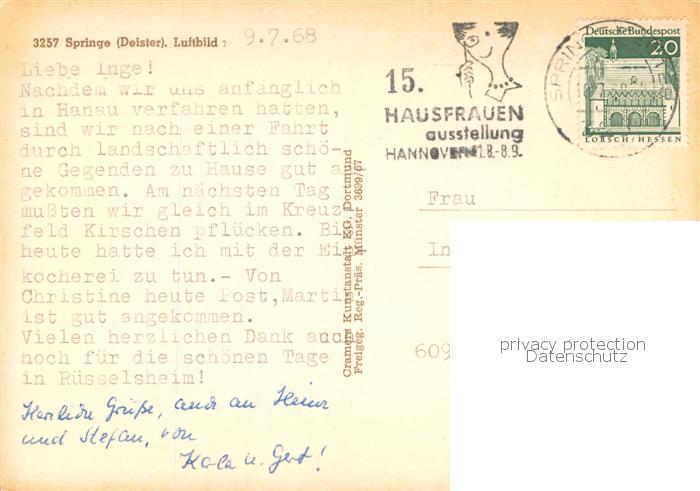 3257 Springe (Deister). Luftbild, 9.7.68
Liebe Inge!
Nachdem wir uns anfänglich
in Hanau verfahren hatten,
sind wir nach einer Fahrt
durch landschaftlich schö-
ne Gegenden zu Hause gut a
gekommen. Am nächsten Tag
mußten wir gleich im Kreuz
feld Kirschen pflücken. Bi
heute hatte ich mit der Ei
kocherei zu tun.- Von
Christine heute Post, Marti
ist gut angekommen.
Vielen herzlichen Dank auc
noch für die schönen Tage
in Rüsselsheim!
Herzliche Grüße, auch an Heinz
und Stefan, von
Karla u. Gert!
Cramers Kunstanstalt KG, Dortmund
Freigeg. Reg.-Präs. Münster 3699/67
15.
HAUSFRAUEN
ausstellung
HANNOVER 31.8.-8.9.
SPRIN
Deutsche Bundespost
20
LORSCH/HESSEN
Frau
In
609
privacy protection
Datenschutz